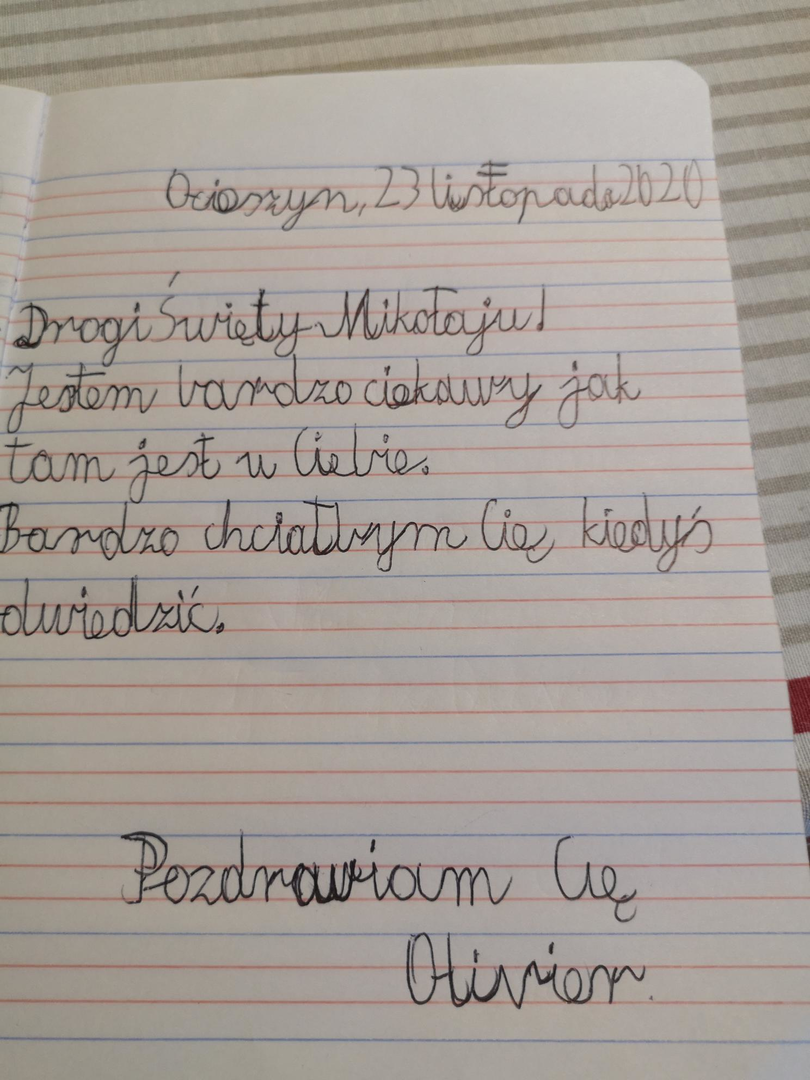 Ocieszyn, 23 listopada 2020
Drogi Święty Mikołaju!
Jestem bardzo ciekawy jak
tam jest u Ciebie.
Bardzo chciałbym Cię kiedyś
odwiedzić.
Pozdrawiam Cię
Olivier.